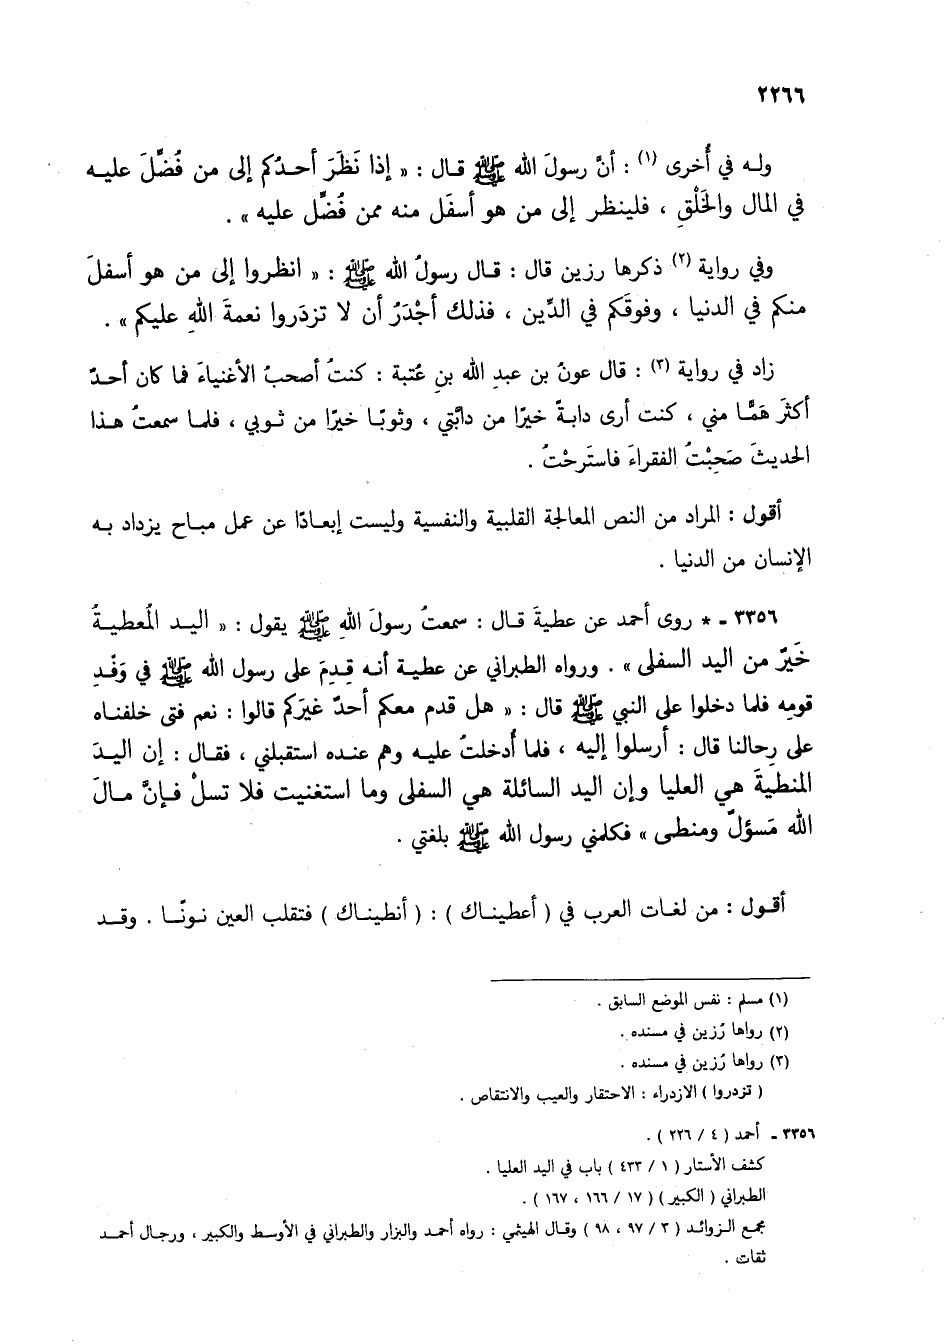 ٢٢٦٦
ولـه في أُخرى (١) : أنَّ رسولَ الله ﷺ قـال : « إذا نَظَرَ أحـدُكم إلى من فُضِّلَ عليـه
في المال والخَلْقِ ، فلينظر إلى من هو أسفَل منه ممن فُضِّل عليه » .
وفي رواية (٢) ذكرها رزين قال : قـال رسولُ الله ﷺ : « انظروا إلى من هو أسفلَ
منكم في الدنيا ، وفوقَكم في الدِّين ، فذلك أجْدَرُ أن لا تزدَروا نعمةَ اللهِ عليكم » .
زاد في رواية (٣) : قال عونُ بن عبدِ الله بنِ عُتبة : كنتُ أصحبُ الأغنياءَ فما كان أحـدٌ
أكثرَ هَمًّا مني ، كنت أرى دابـةً خيرًا من دابَّتي ، وثوبًـا خيرًا من ثـوبي ، فلمـا سمعتُ هـذا
الحديثَ صَحِبْتُ الفقراءَ فاستَرحْتُ .
أقول : المراد من النص المعالجة القلبية والنفسية وليست إبعـادًا عن عمل مبـاح يزداد بـه
الإنسان من الدنيا .
٣٣٥٦ ـ * روى أحمد عن عطيةَ قـال : سمعتُ رسولَ اللهِ ﷺ يقول : « اليـد المُعطيـةُ
خَيرٌ من اليد السفلى » . ورواه الطبراني عن عطيـة أنـه قـدِمَ على رسول الله ﷺ في وَفْـدِ
قومِه فلما دخلوا على النبي ﷺ قال : « هل قدم معكم أحـدٌ غيرَكم قالوا : نعم فتى خلفنـاه
على رِحالنا قال : أرسلوا إليه ، فلما أُدخلتُ عليـه وهم عنـده استقبلني ، فقـال : إن اليـدَ
المنطِيةَ هي العليا وإن اليد السائلة هي السفلى وما استغنيت فلا تسلْ فـإنَّ مـالَ
الله مَسؤلٌ ومنطى » فكلمني رسول الله ﷺ بلغتي .
أقـول : من لغـات العرب في ( أعطينـاك ) : ( أنطينـاك ) فتقلب العين نـونًـا . وقـد
(١) مسلم : نفس الموضع السابق .
(٢) رواها رُزين في مسنده .
(٣) رواها رُزين في مسنده .
( تزدروا ) الازدراء : الاحتقار والعيب والانتقاص .
٣٣٥٦ ـ أحمد ( ٤ / ٢٢٦ ) .
كشف الأستار ( ١ / ٤٣٣ ) باب في اليد العليا .
الطبراني ( الكبير ) ( ١٧ / ١٦٦ ، ١٦٧ ) .
مجمع الـزوائـد ( ٣ / ٩٧ ، ٩٨ ) وقـال الهيثمي : رواه أحمـد والبزار والطبراني في الأوسط والكبير ، ورجـال أحمـد
ثقات .